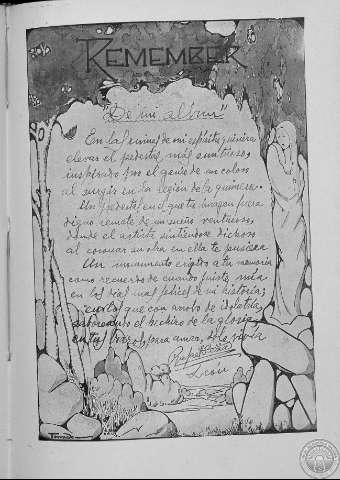 REMEMBER
"De mi album"
En las ruinas de mi espíritu quisiera
elevar el pedestal más suntuoso,
inspirado por el genio de un coloso
al surgir en la region de la quimera.
Un pedestal en el que tu imagen fuera
digno remate de un sueño venturoso,
donde el artista sintiéndose dichoso
al coronar su obra en ella te pusiera
Un monumento erigido a tu memoria
como recuerdo de cuando fuiste mía
en los días mas felices de mi historia;
que con arrobo de idolatría,
saboreando el hechizo de la gloria,
amor, solo vivía
León